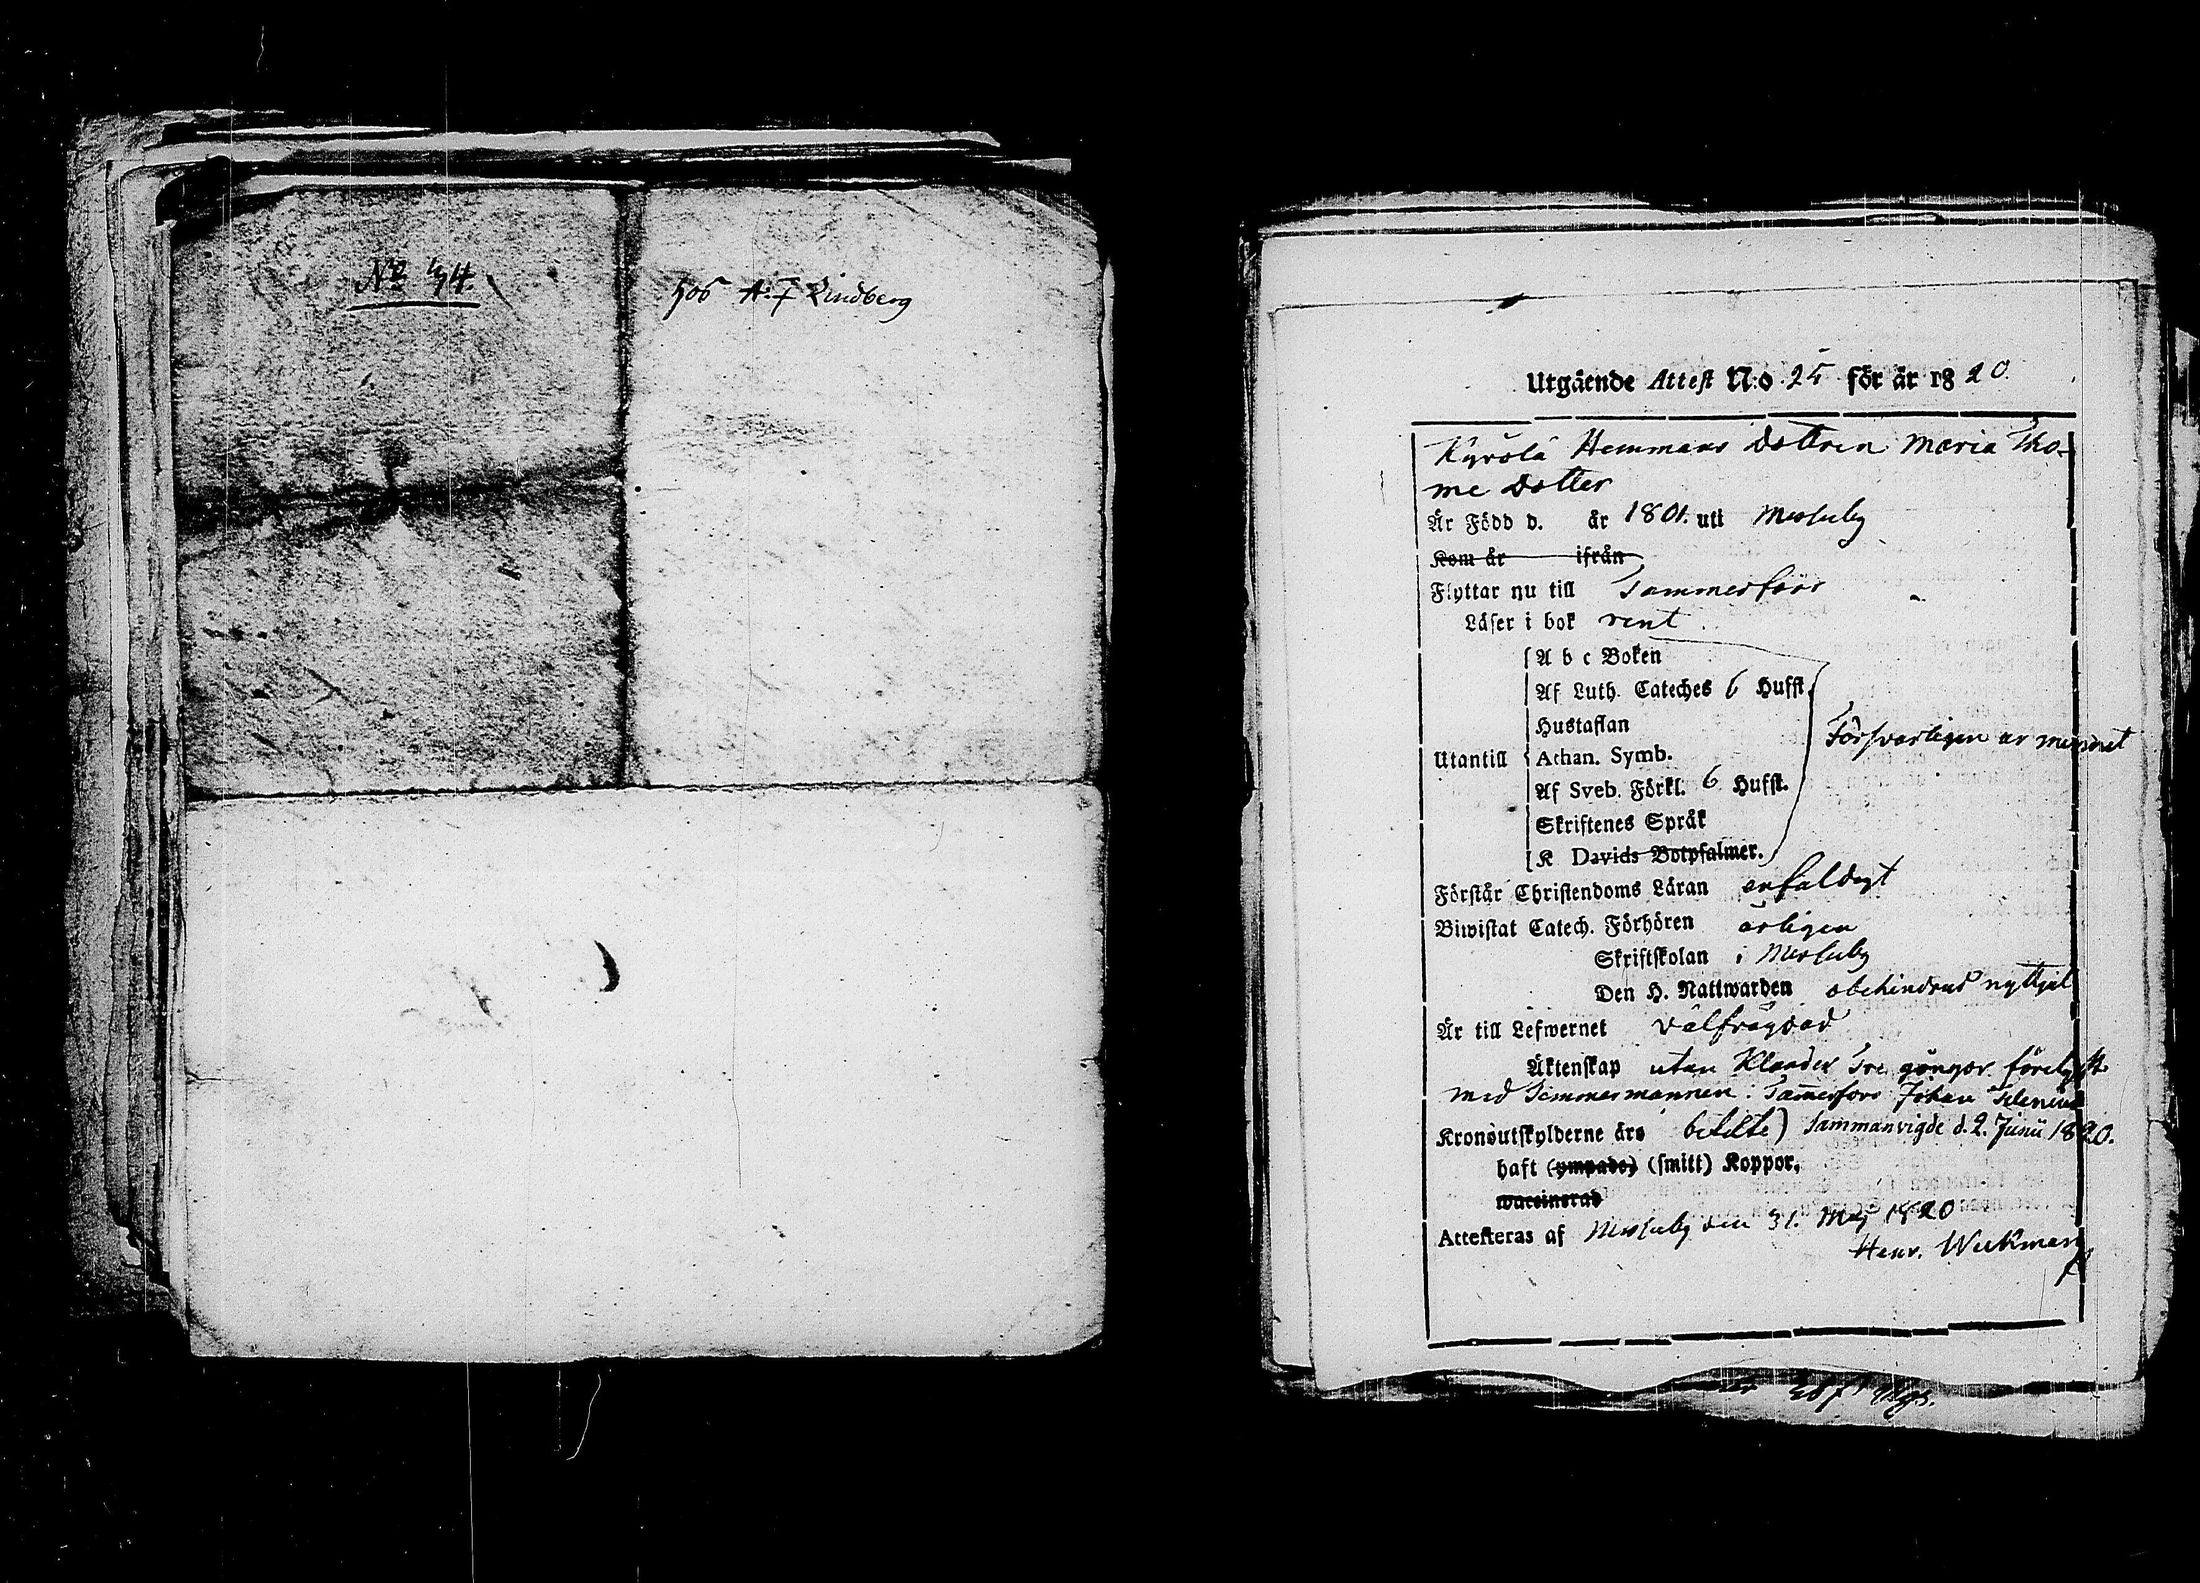 No 34.
506 A. F Lindberg
Utgående Attest N:o 25 för år 1820.
Kyrölä Hemmans Dottren Maria Tho-
me Dotter
Är Född d. år 1801. uti Messuby
Kom år ifrån
Flyttar nu till Tammerfors
Läser i bok rent
A b c Boken
Af Luth. Cateches 6 Hufst.
Hustaflan
Försvarligen ur minnet
Utantill Athan. Symb.
Af Sveb. Förkl. 6 Hufst.
Skriftenes Språk
K Davids Botpsalmer.
Förstår Christendoms Läran enfaldigt
Biwistat Catech. Förhören årligen
Skriftskolan i Messuby
Den H. Nattwarden obehindrad nyttjat
Är till Lefwernet välfrägdad
Äktenskap utan Klander Tre gångor förelyst
med Timmermannen i Tammerfors Johan
Kronoutskylderne äro betalte) Sammanvigde d. 2. Junii 1820.
haft (ympade) (smitt) Koppor,
waccinerad
Attesteras af Messuby den 31. Maj 1820
Henr. Wickman